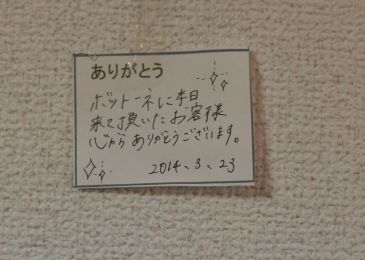 ありがとう
ボットーネに本日
来て頂いたお客様
心からありがとうございます。
2014、3、23